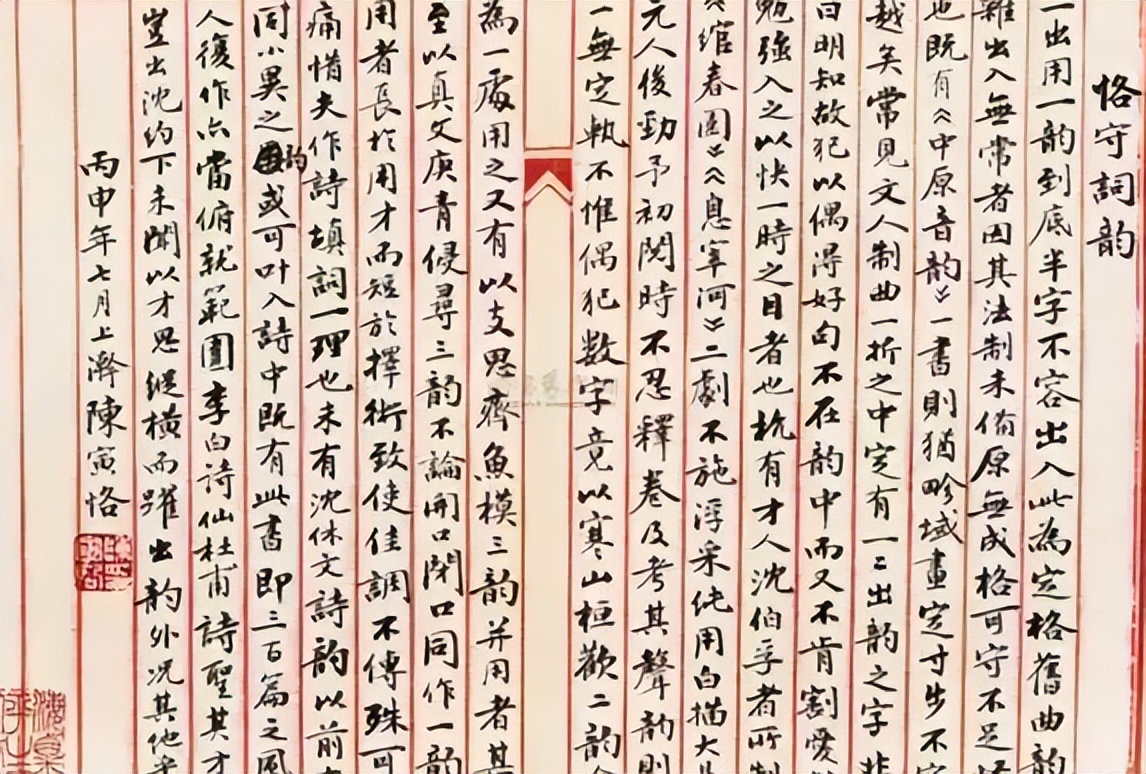 恪守詞韵
一出用一韵到底半字不容出入此為定格舊曲韵
雜出入無常者因其法制未備原無成格可守不足
也既有《中原音韵》一書則猶畛域畫定寸步不
越矣常見文人制曲一折之中定有一二出韵之字非
曰明知故犯以偶得好句不在韵中而又不肯割愛
勉強入之以快一時之目者也杭有才人沈伯孚者所制
《綰春園》《息宰河》二劇不施浮采純用白描大是
元人後勁予初閱時不忍釋卷及考其聲韵則
一無定軌不惟偶犯数字竟以寒山桓歡二韵
為一處用之又有以支思齊魚模三韵并用者甚
至以真文庚青侵尋三韵不論開口閉口同作一韵
用者長於用才而短於擇術致使佳調不傳殊可
痛惜夫作詩填詞一理也未有沈休文詩韵以前
同小異之韵或可叶入詩中既有此書即三百篇之風
人復作亦當俯就範圍李白詩仙杜甫詩聖其才
豈出沈約下未聞以才思縱橫而躍出韵外况其他
丙申年七月上澣陳寅恪